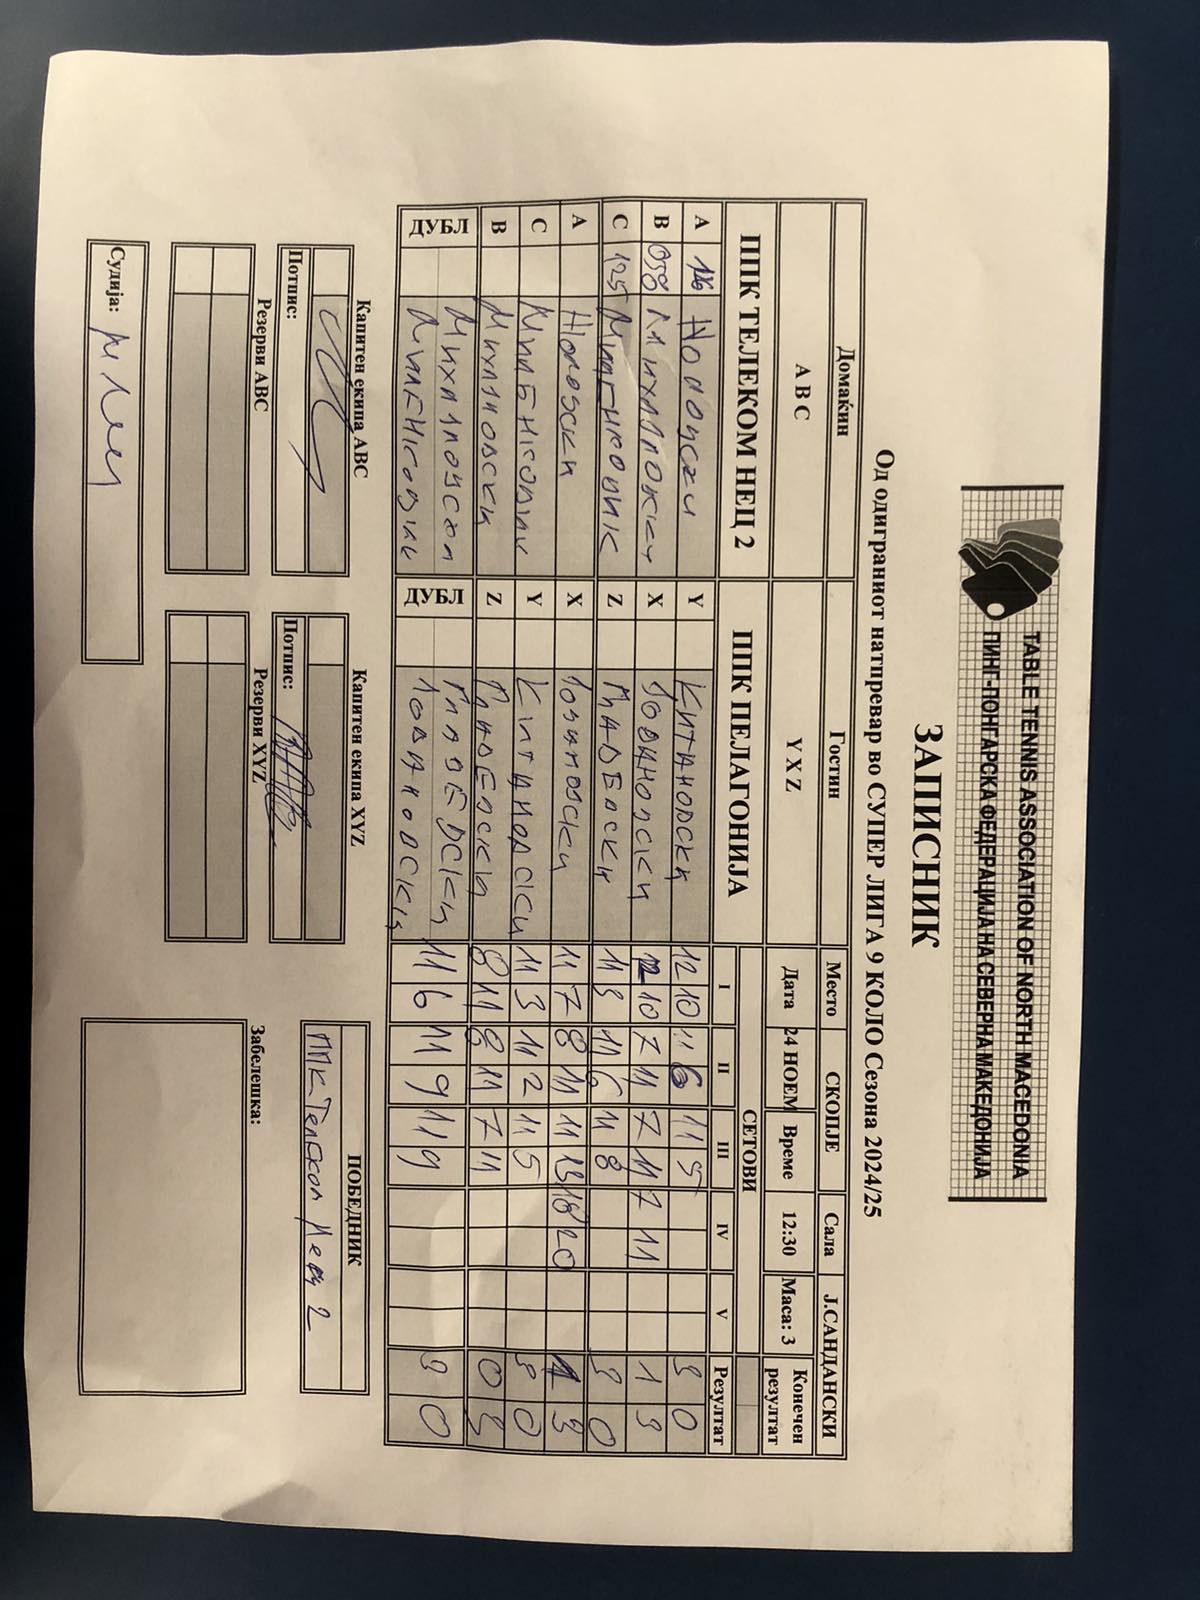 TABLE TENNIS ASSOCIATION OF NORTH MACEDONIA
ПИНГ-ПОНГАРСКА ФЕДЕРАЦИЈА НА СЕВЕРНА МАКЕДОНИЈА
ЗАПИСНИК
Од одиграниот натпревар во СУПЕР ЛИГА 9 КОЛО Сезона 2024/25
Домаќин Гостин Место СКОПЈЕ Сала Ј.САНДАНСКИ
A B C Y X Z Дата 24 НОЕМ Време 12:30 Маса: 3 Конечен резултат
ППК ТЕЛЕКОМ НЕЦ 2 ППК ПЕЛАГОНИЈА СЕТОВИ
I II III IV V Резултат
A Y Китановски 12 10 11 6 11 5 3 0
B 058 X Јовановски 12 10 7 11 7 11 7 11 1 3
C 125 Z 11 3 11 6 11 8 3 0
A X Јовановски 11 7 8 11 11 13 18 20 1 3
C Y Китановски 11 3 11 2 11 5 3 0
B Михајловски Z 8 11 8 11 7 11 0 3
ДУБЛ ДУБЛ 11 6 11 9 11 9 3 0
Јовановски
Капитен екипа ABC Капитен екипа XYZ ПОБЕДНИК
ППК Телеком Нец 2
Потпис: Потпис:
Резерви ABC Резерви XYZ Забелешка:
Судија: